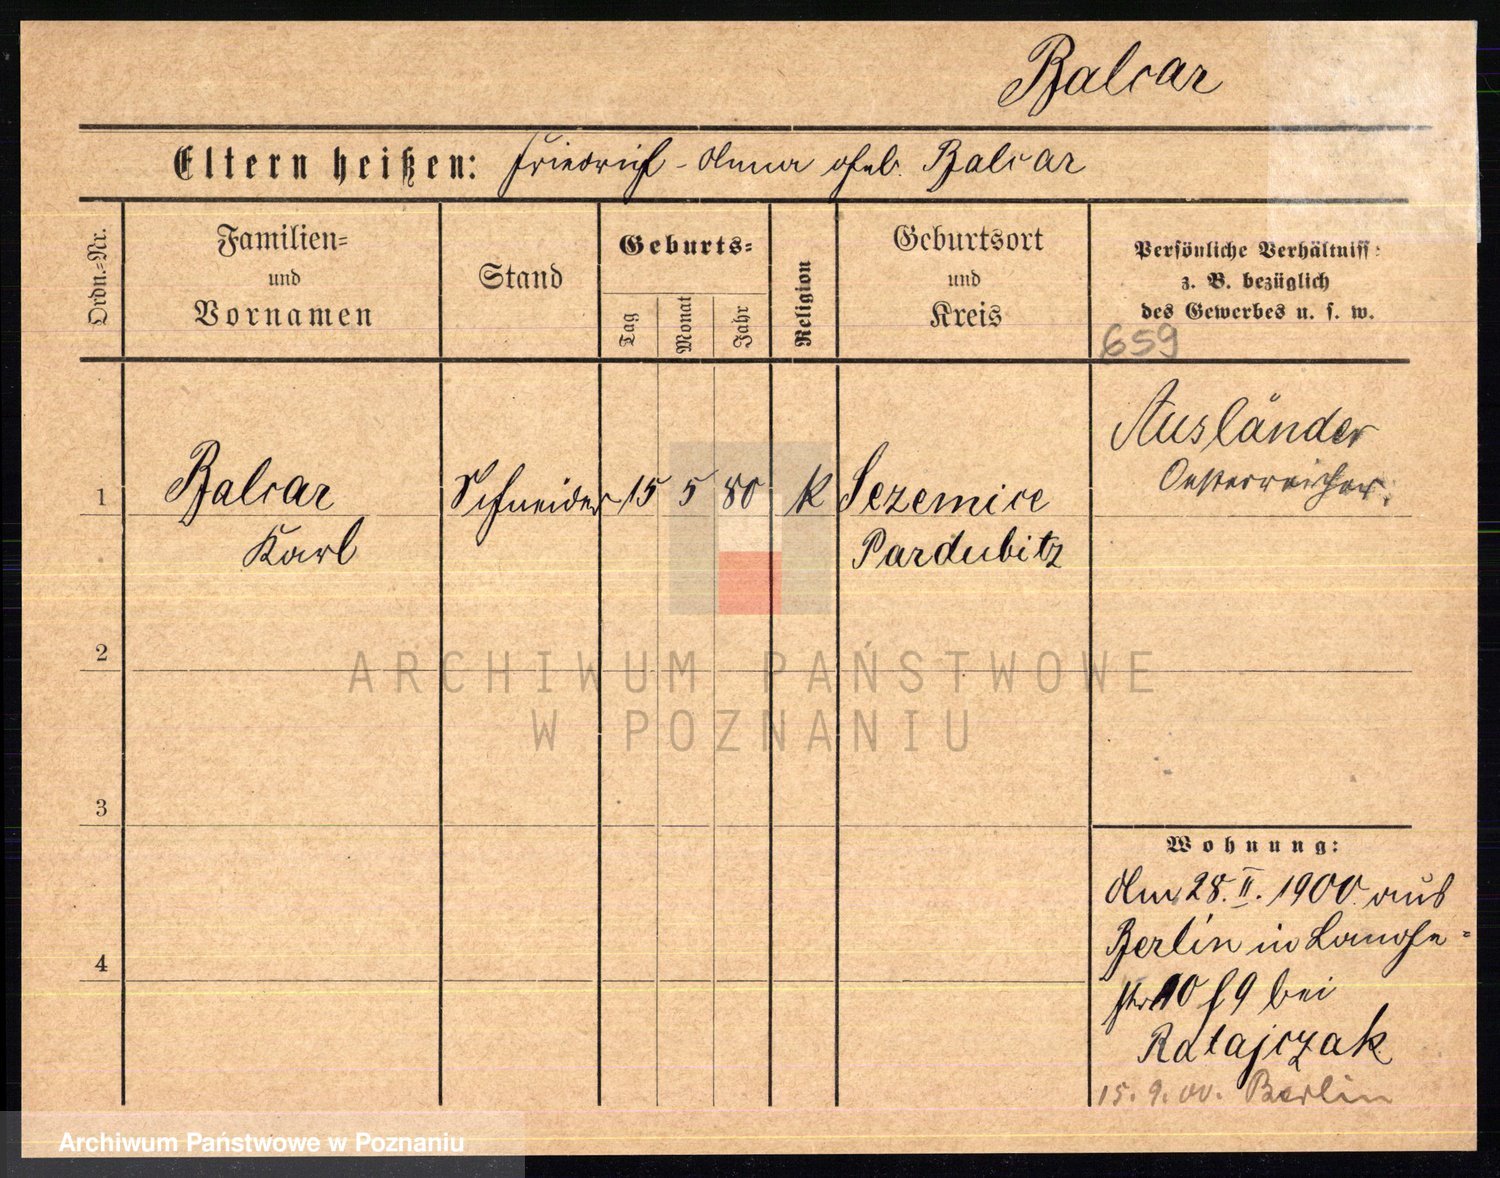 Balcar
Eltern heißen: Friedrich - Anna geb. Balcar
Ordn.=Nr.
Familien=
und
Vornamen
Stand
Geburts=
Tag
Monat
Jahr
Religion
Geburtsort
und
Kreis
Persönliche Verhältniss
z. B. bezüglich
des Gewerbes u. s. w.
659
1
Balcar
Karl
Schneider
15
5
80
k
Sezemice
Pardubitz
Ausländer
Oesterreicher.
2
3
4
ARCHIWUM PAŃSTWOWE
W POZNANIU
Wohnung:
Am 28. II. 1900 aus
Berlin in Lange=
str 10 bei
Ratajczak
15. 9. 00. Berlin
Archiwum Państwowe w Poznaniu